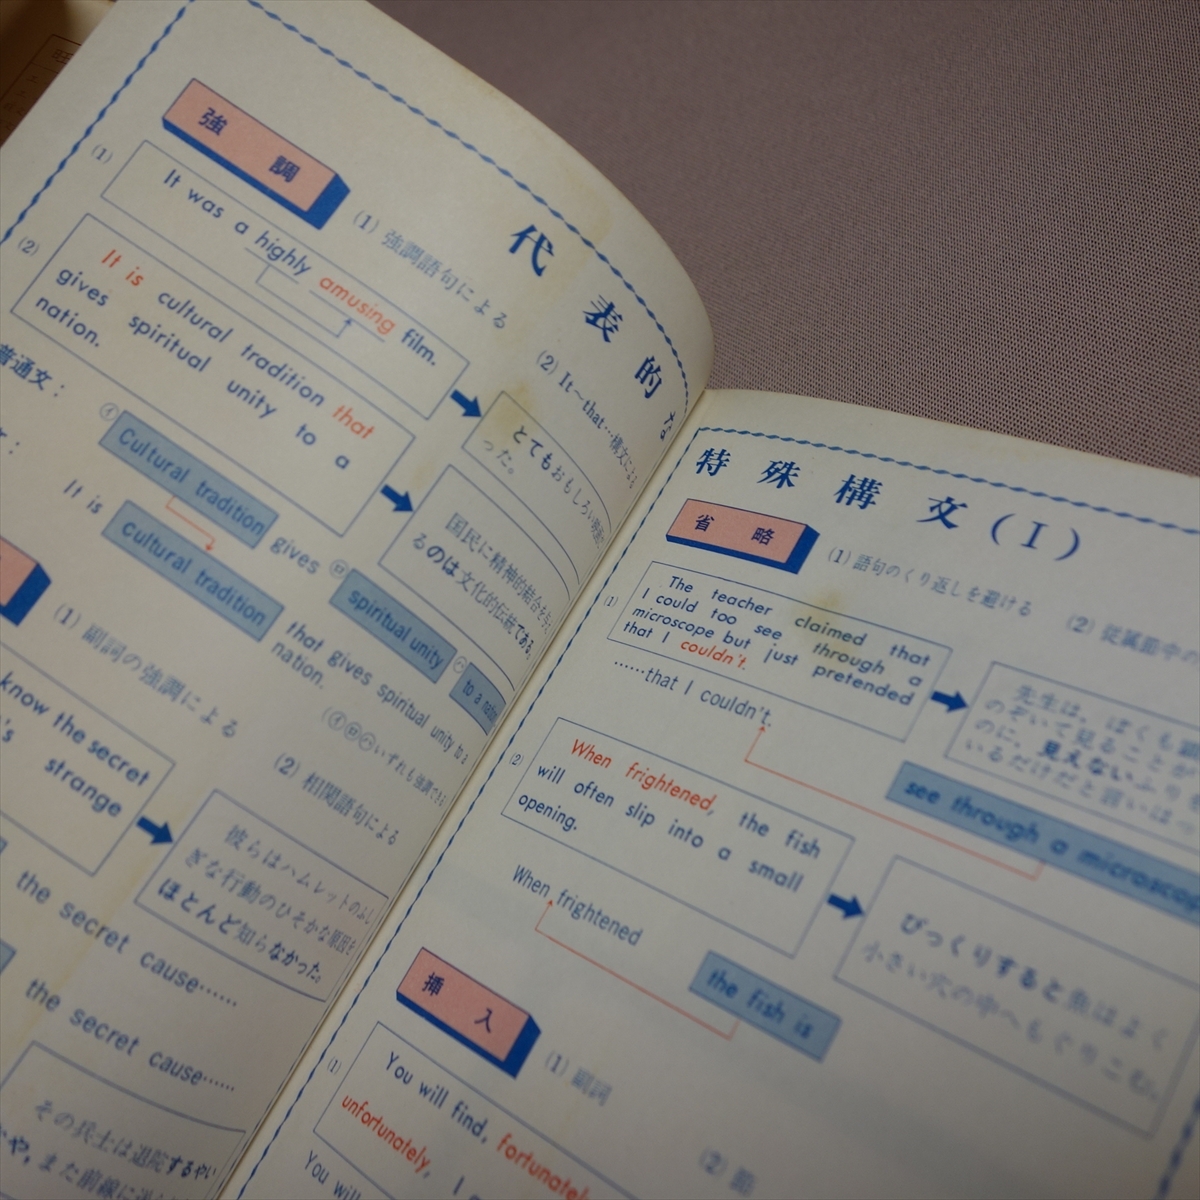 代表的な
強調
(1) 強調語句による
(2) It～that…構文による
(1)
It was a highly amusing film.
とてもおもしろい
った。
(2)
It is cultural tradition that
gives spiritual unity to a
nation.
国民に精神的結合を
るのは文化的伝統である。
普通文：
㋑ Cultural tradition gives ㋺ spiritual unity ㋩ to a nation
It is Cultural tradition that gives spiritual unity to a
nation.
(㋑㋺㋩いずれも強調できる
(1) 副詞の強調による
(2) 相関語句による
know the secret
's strange
彼らはハムレットのふし
ぎな行動のひそかな原因を
ほとんど知らなかった。
the secret cause……
the secret cause……
その兵士は退院するやい
や，また前線に
特殊構文(I)
省略
(1) 語句のくり返しを避ける
(2) 従属節中の
(1)
The teacher claimed that
I could too see through a
microscope but just pretended
that I couldn't.
先生は，ぼくも顕
のぞいて見ることが
のに，見えないふりを
いるだけだと言いはっ
……that I couldn't.
see through a microscop
(2)
When frightened, the fish
will often slip into a small
opening.
びっくりすると魚はよく
小さい穴の中へもぐりこむ。
When frightened
the fish is
挿入
(1) 副詞
(2)
(1)
You will find, fortunatel
unfortunately, I
You will